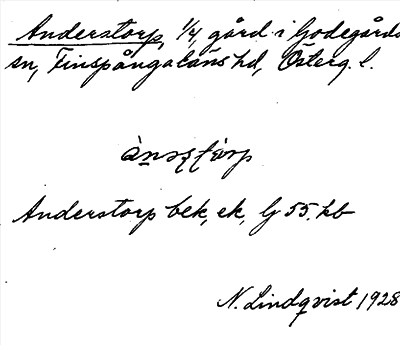 Anderstorp, 1/4, gård i Godegårds
sn, Finspånga läns hd, Österg. l.
Anderstorp bek, ek, G 55. hb
N. Lindqvist 1928